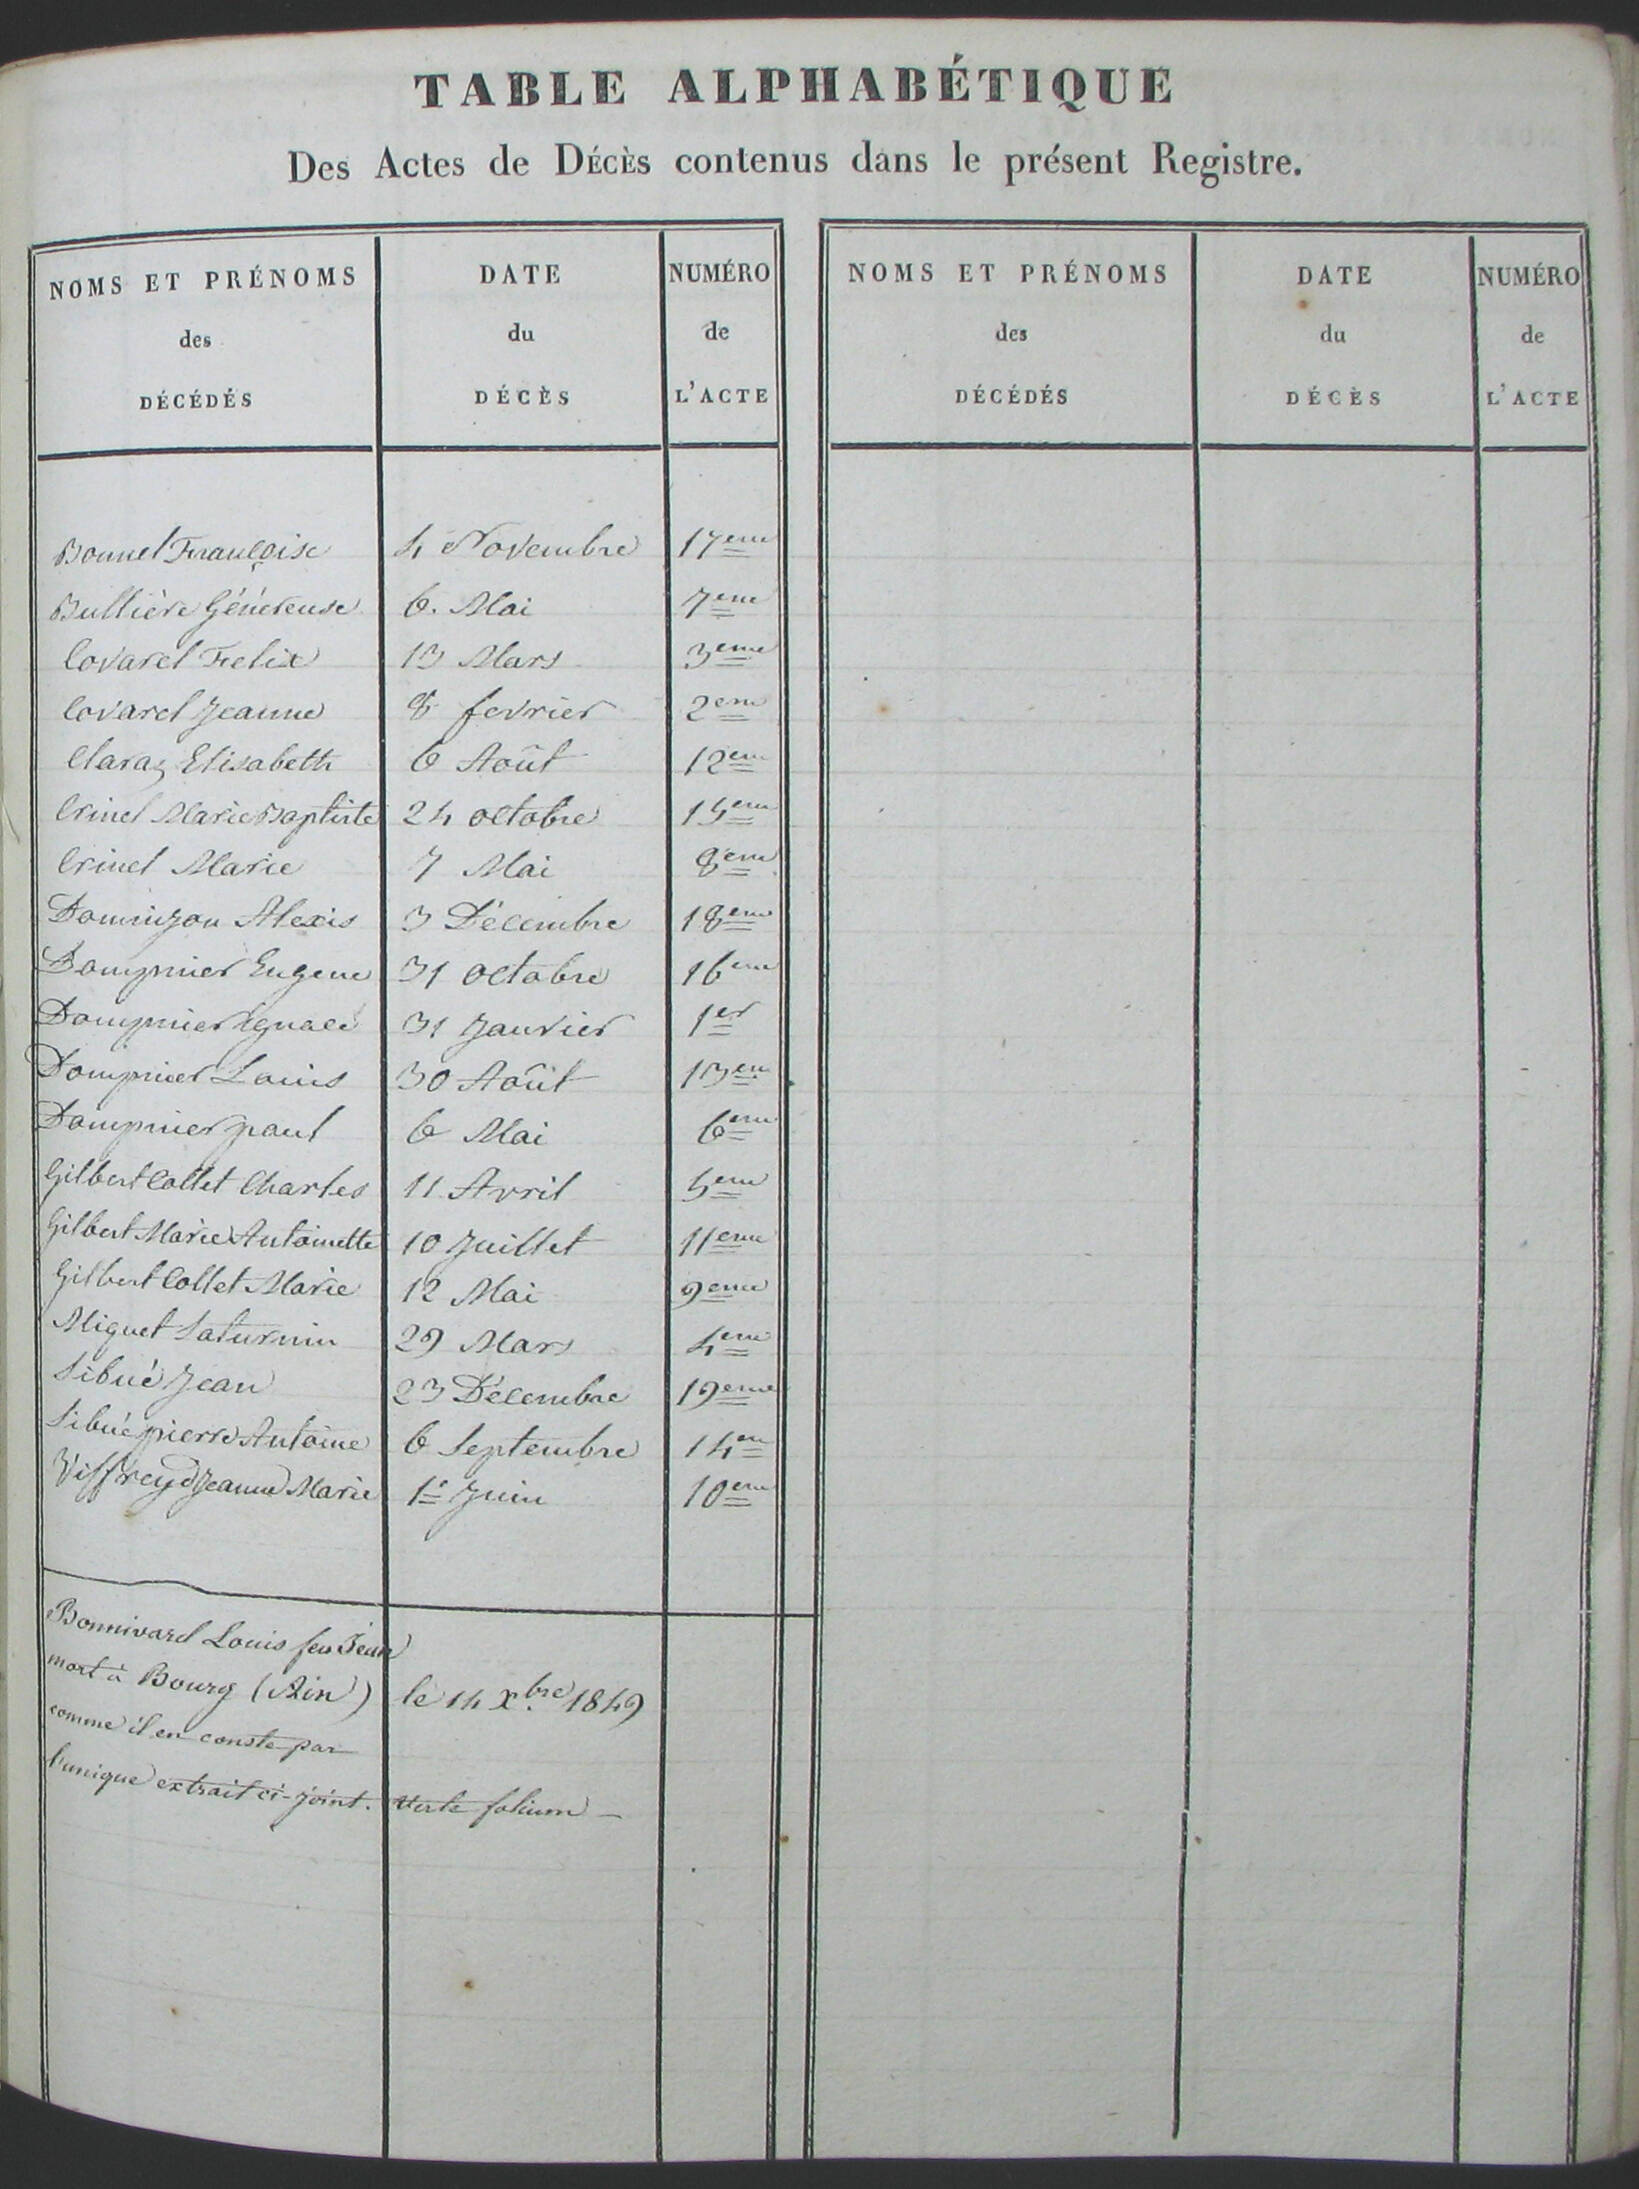 TABLE ALPHABÉTIQUE
Des Actes de DÉCÈS contenus dans le présent Registre.
NOMS ET PRÉNOMS des DÉCÉDÉS DATE du DÉCÈS NUMÉRO de L'ACTE NOMS ET PRÉNOMS des DÉCÉDÉS DATE du DÉCÈS NUMÉRO de L'ACTE
Bonnel Françoise 4 Novembre 17eme
Bullière Généreuse 6. Mai 7eme
Covarel Felix 13 Mars 3eme
Covarel Jeanne 8 fevrier 2eme
Claraz Elisabeth 6 Août 12eme
Crinel Marie Baptiste 24 octobre 15eme
Crinel Marie 7 Mai 8eme
Dominjon Alexis 3 Décembre 18eme
Dompnier Eugene 31 octobre 16eme
Dompnier Ignace 31 Janvier 1er
Dompnier Louis 30 Août 13eme
Dompnier paul 6 Mai 6eme
Gilbert Collet Charles 11 Avril 5eme
Gilbert Marie Antoinette 10 Juillet 11eme
Gilbert Collet Marie 12 Mai 9eme
Miquet Saturnin 29 Mars 4eme
Sibué Jean 23 Décembre 19eme
Sibué pierre Antoine 6 Septembre 14eme
Viffreyd Jeanne Marie 1r Juin 10eme
Bonnivard Louis feu Jean
mort à Bourg (Ain) le 14 Xbre 1849
comme il en conste par
l'unique extrait ci-joint. Verte folium